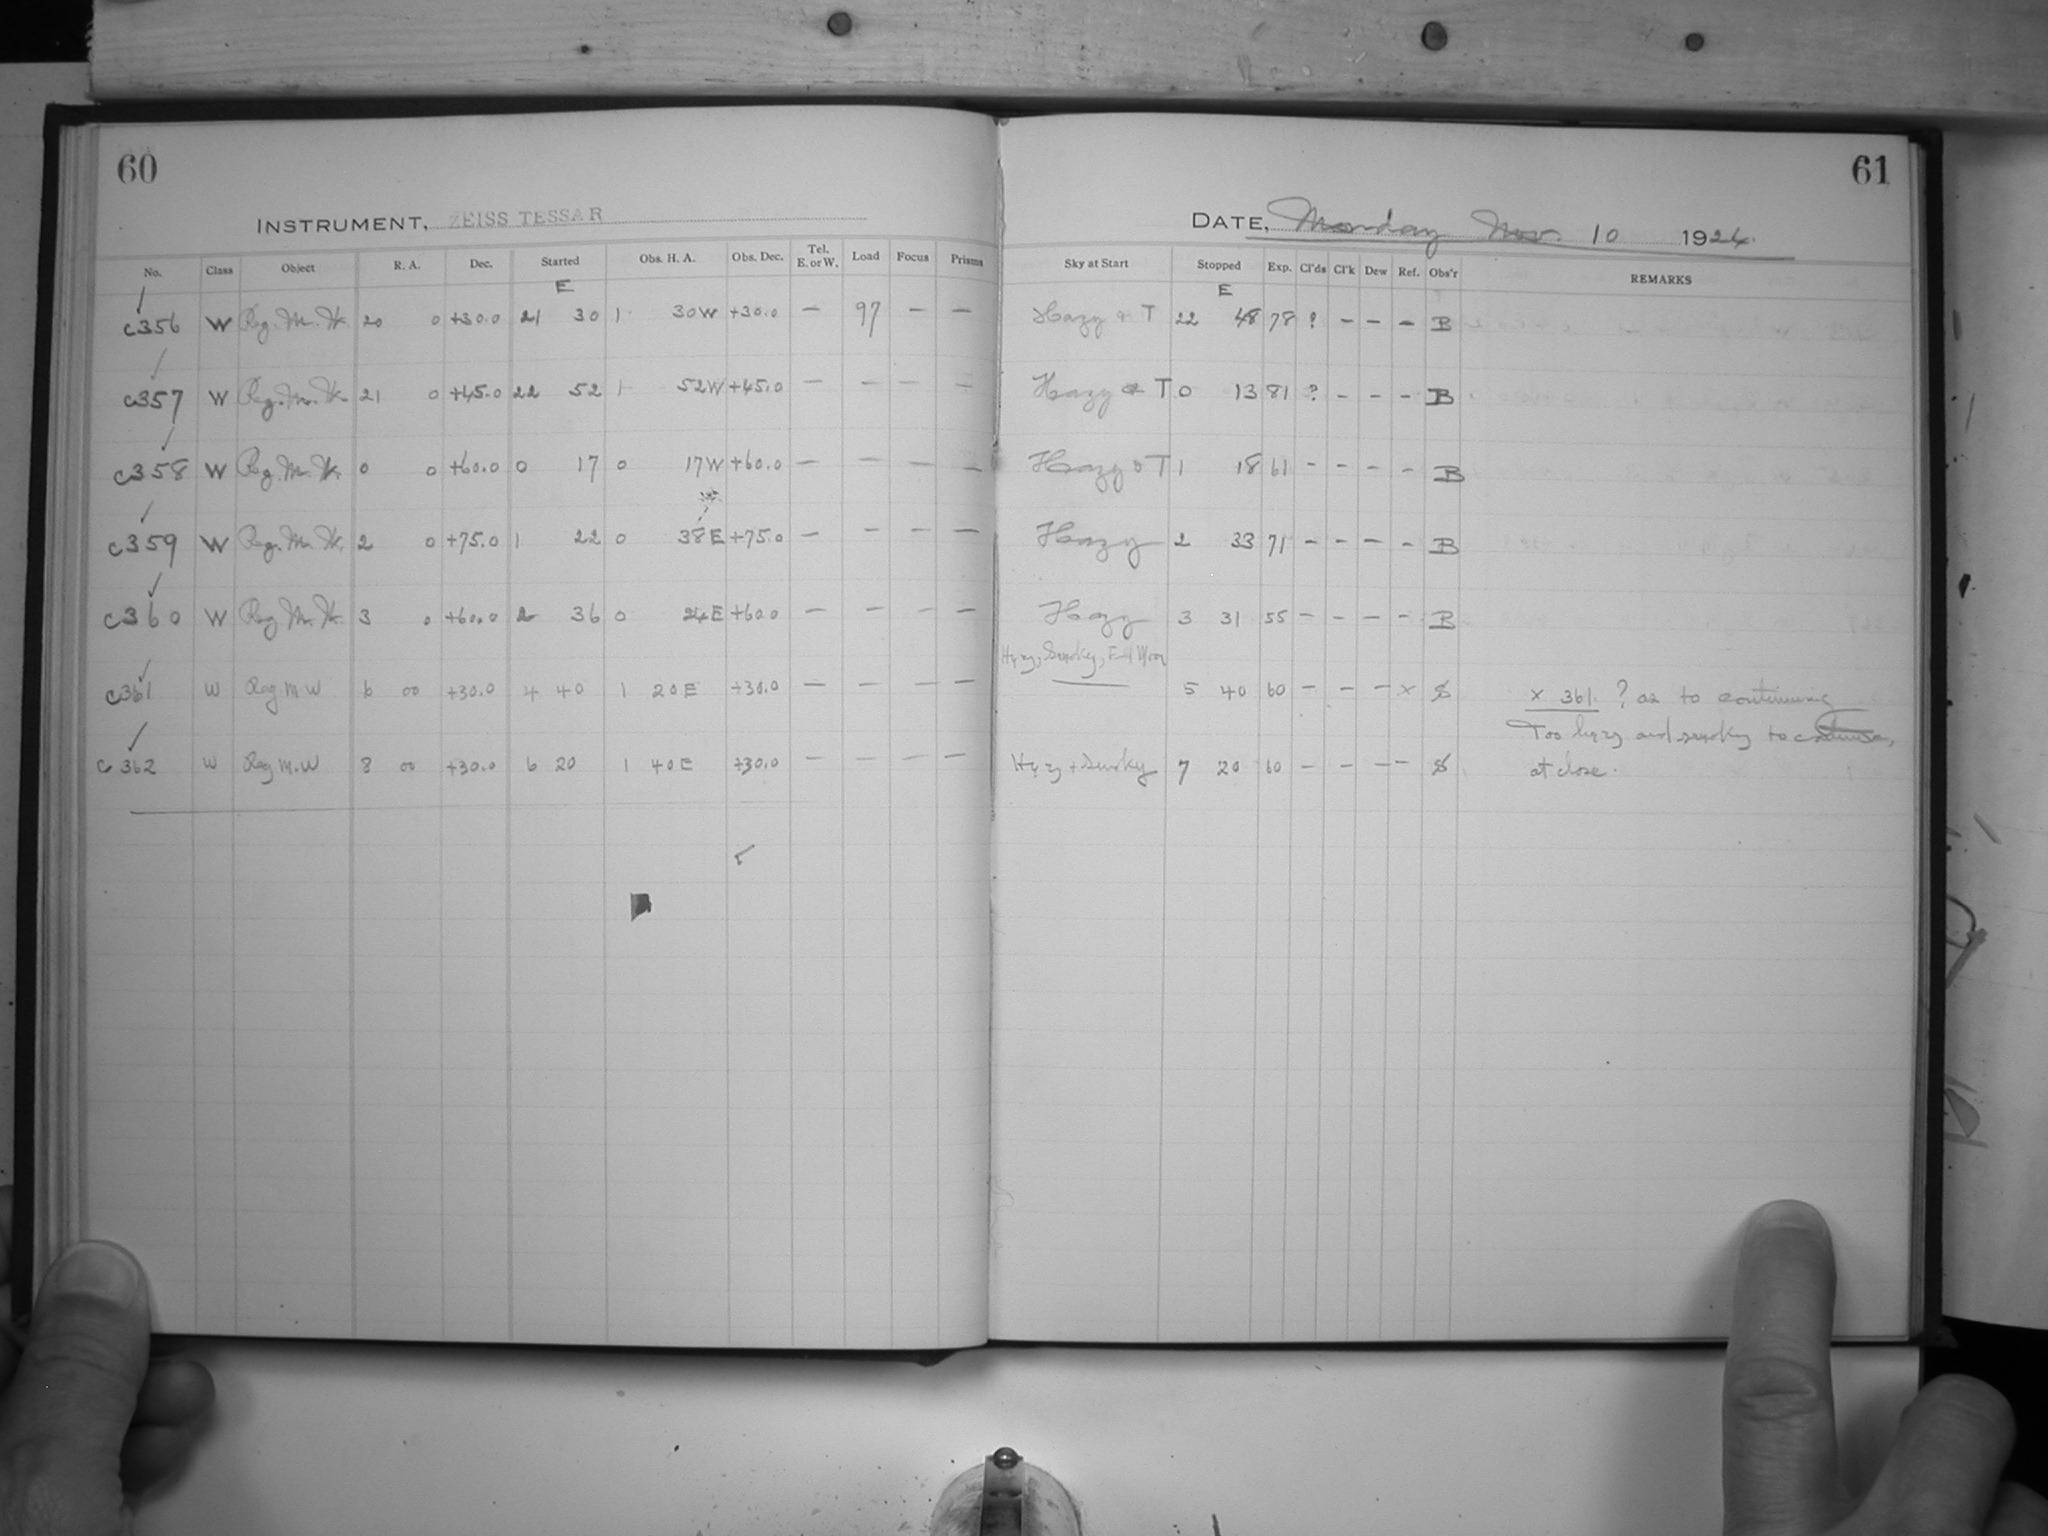 60
61
INSTRUMENT, ZEISS TESSAR
DATE, Monday Nov. 10 1924.
No. Class Object R. A. Dec. Started Obs. H. A. Obs. Dec. Tel. E. or W. Load Focus Prisms Sky at Start Stopped Exp. Cl'ds Cl'k Dew Ref. Obs'r REMARKS
E E
c356 W Reg. M. W. 20 0 +30.0 21 30 1 30W +30.0 — 97 — — Hazy & T 22 48 78 ? – – – B
c357 W Reg. M. W. 21 0 +45.0 22 52 1 52W +45.0 — — — — Hazy & T 0 13 81 ? – – – B
c358 W Reg. M. W. 0 0 +60.0 0 17 0 17W +60.0 — — — — Hazy & T 1 18 61 – – – – B
c359 W Reg. M. W. 2 0 +75.0 1 22 0 38E +75.0 — — — — Hazy 2 33 71 – – – – B
c360 W Reg. M. W. 3 0 +60.0 2 36 0 24E +60.0 — — — — Hazy 3 31 55 – – – – B
Hazy, Smoky, Full Moon
c361 W Reg M W 6 00 +30.0 4 40 1 20E +30.0 — — — — 5 40 60 – – – x S x 361. ? as to continuing
Too hazy and smoky to continue,
c362 W Reg M. W 8 00 +30.0 6 20 1 40E +30.0 — — — — Hazy + Smoky 7 20 60 – – – – S at close.